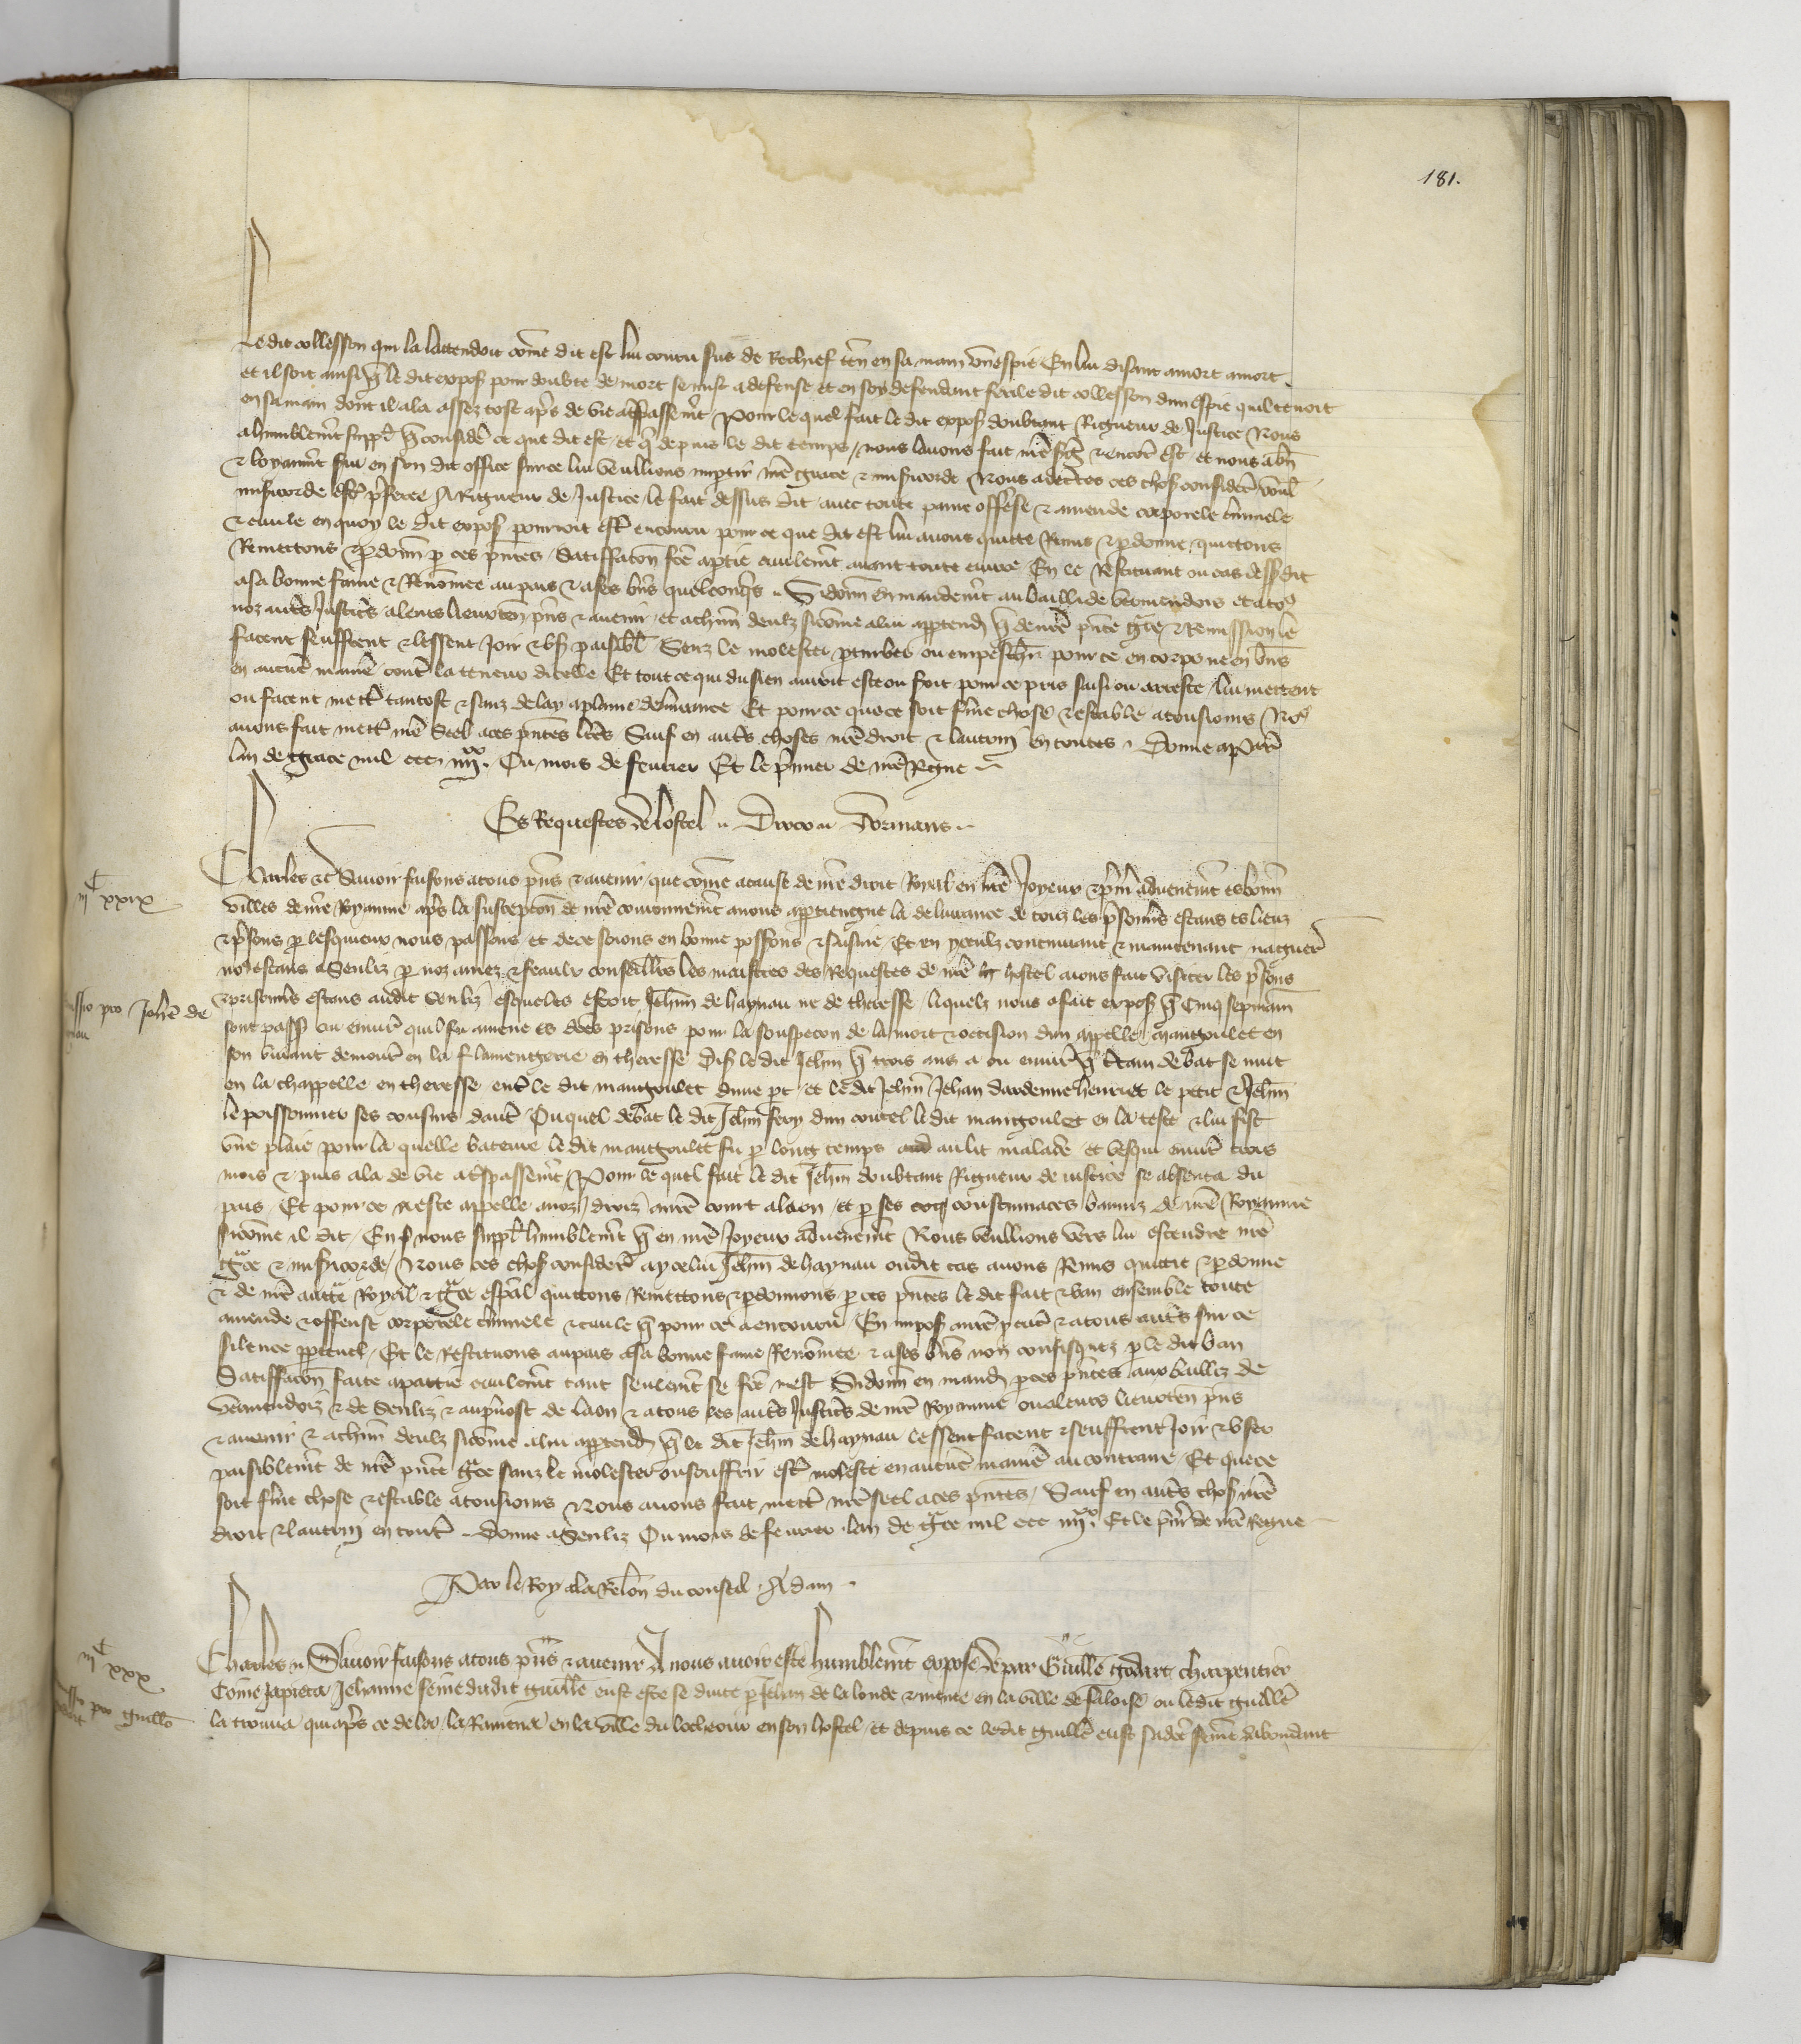 181.
Ledit collesson qui la lattendoit come dit est lui couru sus de rechief ten en sa main un espie En lui disant amort amort
et il soit ainsi q̄ le dit expoſ pour doubte de mort se mist a defense et en soy defendant feri le dit collesson dun espie quil tenoit
en sa main dont il ala assez tost apſ de vie a trespassemt Pour le quel fait le dit expoſ doubtant Rigueur de Justice Nous
a humblemt suppl q̄ consider ce que dit est et q̄ depuis le dit temps nous lavons fait
& loyaumt sui en son dit office sur ce lui veullions impartir nre grace & misericorde Nous adectes ces choſ consider voul
misericorde estre preferee A Rigueur de Justice le fait dessus dit avec toute paine offese & amende corporele criminele
& civile en quoy le dit expoſ pourroit estre encouru pour ce que dit est lui avons quitte Remis & pdonne quittons
Remettons & pdonn p ces pntes Satiffaton fce a ptie civilemt avant toute euvre En le Restituant ou cas dessſdit
a sa bonne fame & Renomee au pais & a ses bns quelconqs Si donn en mandemt au bailli de vermendois et a toſ
noz autſ Justicſ a leurs lieuxten pns & avenir et a chun deulz sicome a lui apptend q̄ de nre pnte gce & Remission le
facent seuffrent & lessent Joir & uſ paisibl Senz le molester ptourber ou empeschr pour ce en corps ne en bns
en aucune maniē contre la teneur dicelle Et tout ce qui du sien auroit este ou soit pour ce pris saisi ou arreste lui mettent
ou facent mettre tantost & sanz delay a plaine delivrance Et pour ce que ce soit ferme chose & estable a tousiours Noſ
avons fait mettre nre Seel a ces pntes lres Sauf en autſ choses nre droit & lautruy en toutes Donne a Paris
lan de grace mil ccc iiijxx. Ou mois de fevrier Et le pmier de nre Regne
Es Requestes de lostel Droco Dormans
iijC xxix
Charles &c Savoir faisons a tous pns & avenir que come a cause de nre droit Royal en nre Joyeux & pm advenemt es bonn
villes de nre Royaume apſ la suscepton de nre couronnemt a nous appartiengne la delivrance de touz les psonniſ estans es lieux
& psons p lesquieux nous passons et de ce soions en bonne possess & saisine Et en yceulz continuant & maintenant naguer
noſ estans a Senliz p noz amez & feaulx conseilliſ les maistres des Requestes de nre hostel avons fait visiter les psons
Jehan de
& prisonniſ estans audit Senliz esqueles estoit Jehan de haynau ne de theresse liquelz nous a fait expoſ q̄ cinq sepmain
sont passſ ou environ quil fu amene es dces prisons pour la souspecon de la mort & occision dun appelle mangoulet en
son vivant demourt en la flamengerie en theresse Diſ le dit Jehan q̄ trois ans a ou environ q̄ certain debat se mut
en la chappelle en theresse entre le dit mangoulet dune pt et le dit Jehan Jehan dardenne henriet le petit & Jehan
le poissonnier ses cousins dautre Ouquel debat le dit Jehan fery dun coutel le dit mangoulet en la teste & lui fist
une plaie pour la quelle bateure le dit mangoulet fu p long temps au lit malade et vesqui environ trois
mois & puis ala de vie a trespassemt Pour le quel fait le dit Jehan doubtant Rigueur de iustice se absenta du
pais Et pour ce a este appelle a noz droiz a nre court a laon et p ses coustumaces banniz de nre Royaume
sicome il dit En ſ nous suppl humblemt q̄ en nre Joyeux advenemt Nous veullions vers lui estendre nre
gce & misericorde Nous ces choſ consideré a ycelui Jehan de haynau oudit cas avons Remis quitte & pdonne
& de nre autte Royal & gce espal quittons Remettons & pdonnons p ces pntes le dit fait & ban ensemble toute
amende & offense corporele criminele & civile q̄ pour ce a encouru En impoſ a nre pcur & a tous autſ sur ce
silence ppetuel Et le Restituons au pais a sa bonne fame Renomee & a ses bns non confisquez p le dit ban
Satiffacon faite a partie civilemt tant seulemt se fce nest Si donn en mand p ces pntes aux bailliz de
vermendoiz & de Senliz & au pvost de laon & a tous les autſ Justicſ de nre Royaume ou a leurs lieuxten pns
& avenir & a chun deulz sicome a lui apptend q̄ le dit Jehan de haynau lessent facent & seuffrent Joir & user
paisiblemt de nre pnte gce sanz le molester ou souffrir estre moleste en aucune maniē au contraire Et que ce
soit ferme chose & estable a tousiours Nous avons fait mettre nre seel a ces pntes Sauf en autſ choſ nre
droit & lautruy en toutes Donne a Senliz Ou mois de fevrier lan de gce mil ccc iiijxx. Et le pmier de nre Regne
Par le Roy a la Relon du conseil Adam
iijC xxx
Charles Savoir faisons a tous pns & avenir A nous avoir este humblemt expose de par Guille Godart charpentier
pro guillo
Come Jehanne feme dudit guille eust este seduite p Jehan de la londe & menee en la ville de faloise ou ledit guille
la trouva qui apſ ce de la Ramena en la ville du locheour en son hostel et depuis ce le dit guille eust sadce feme habondant